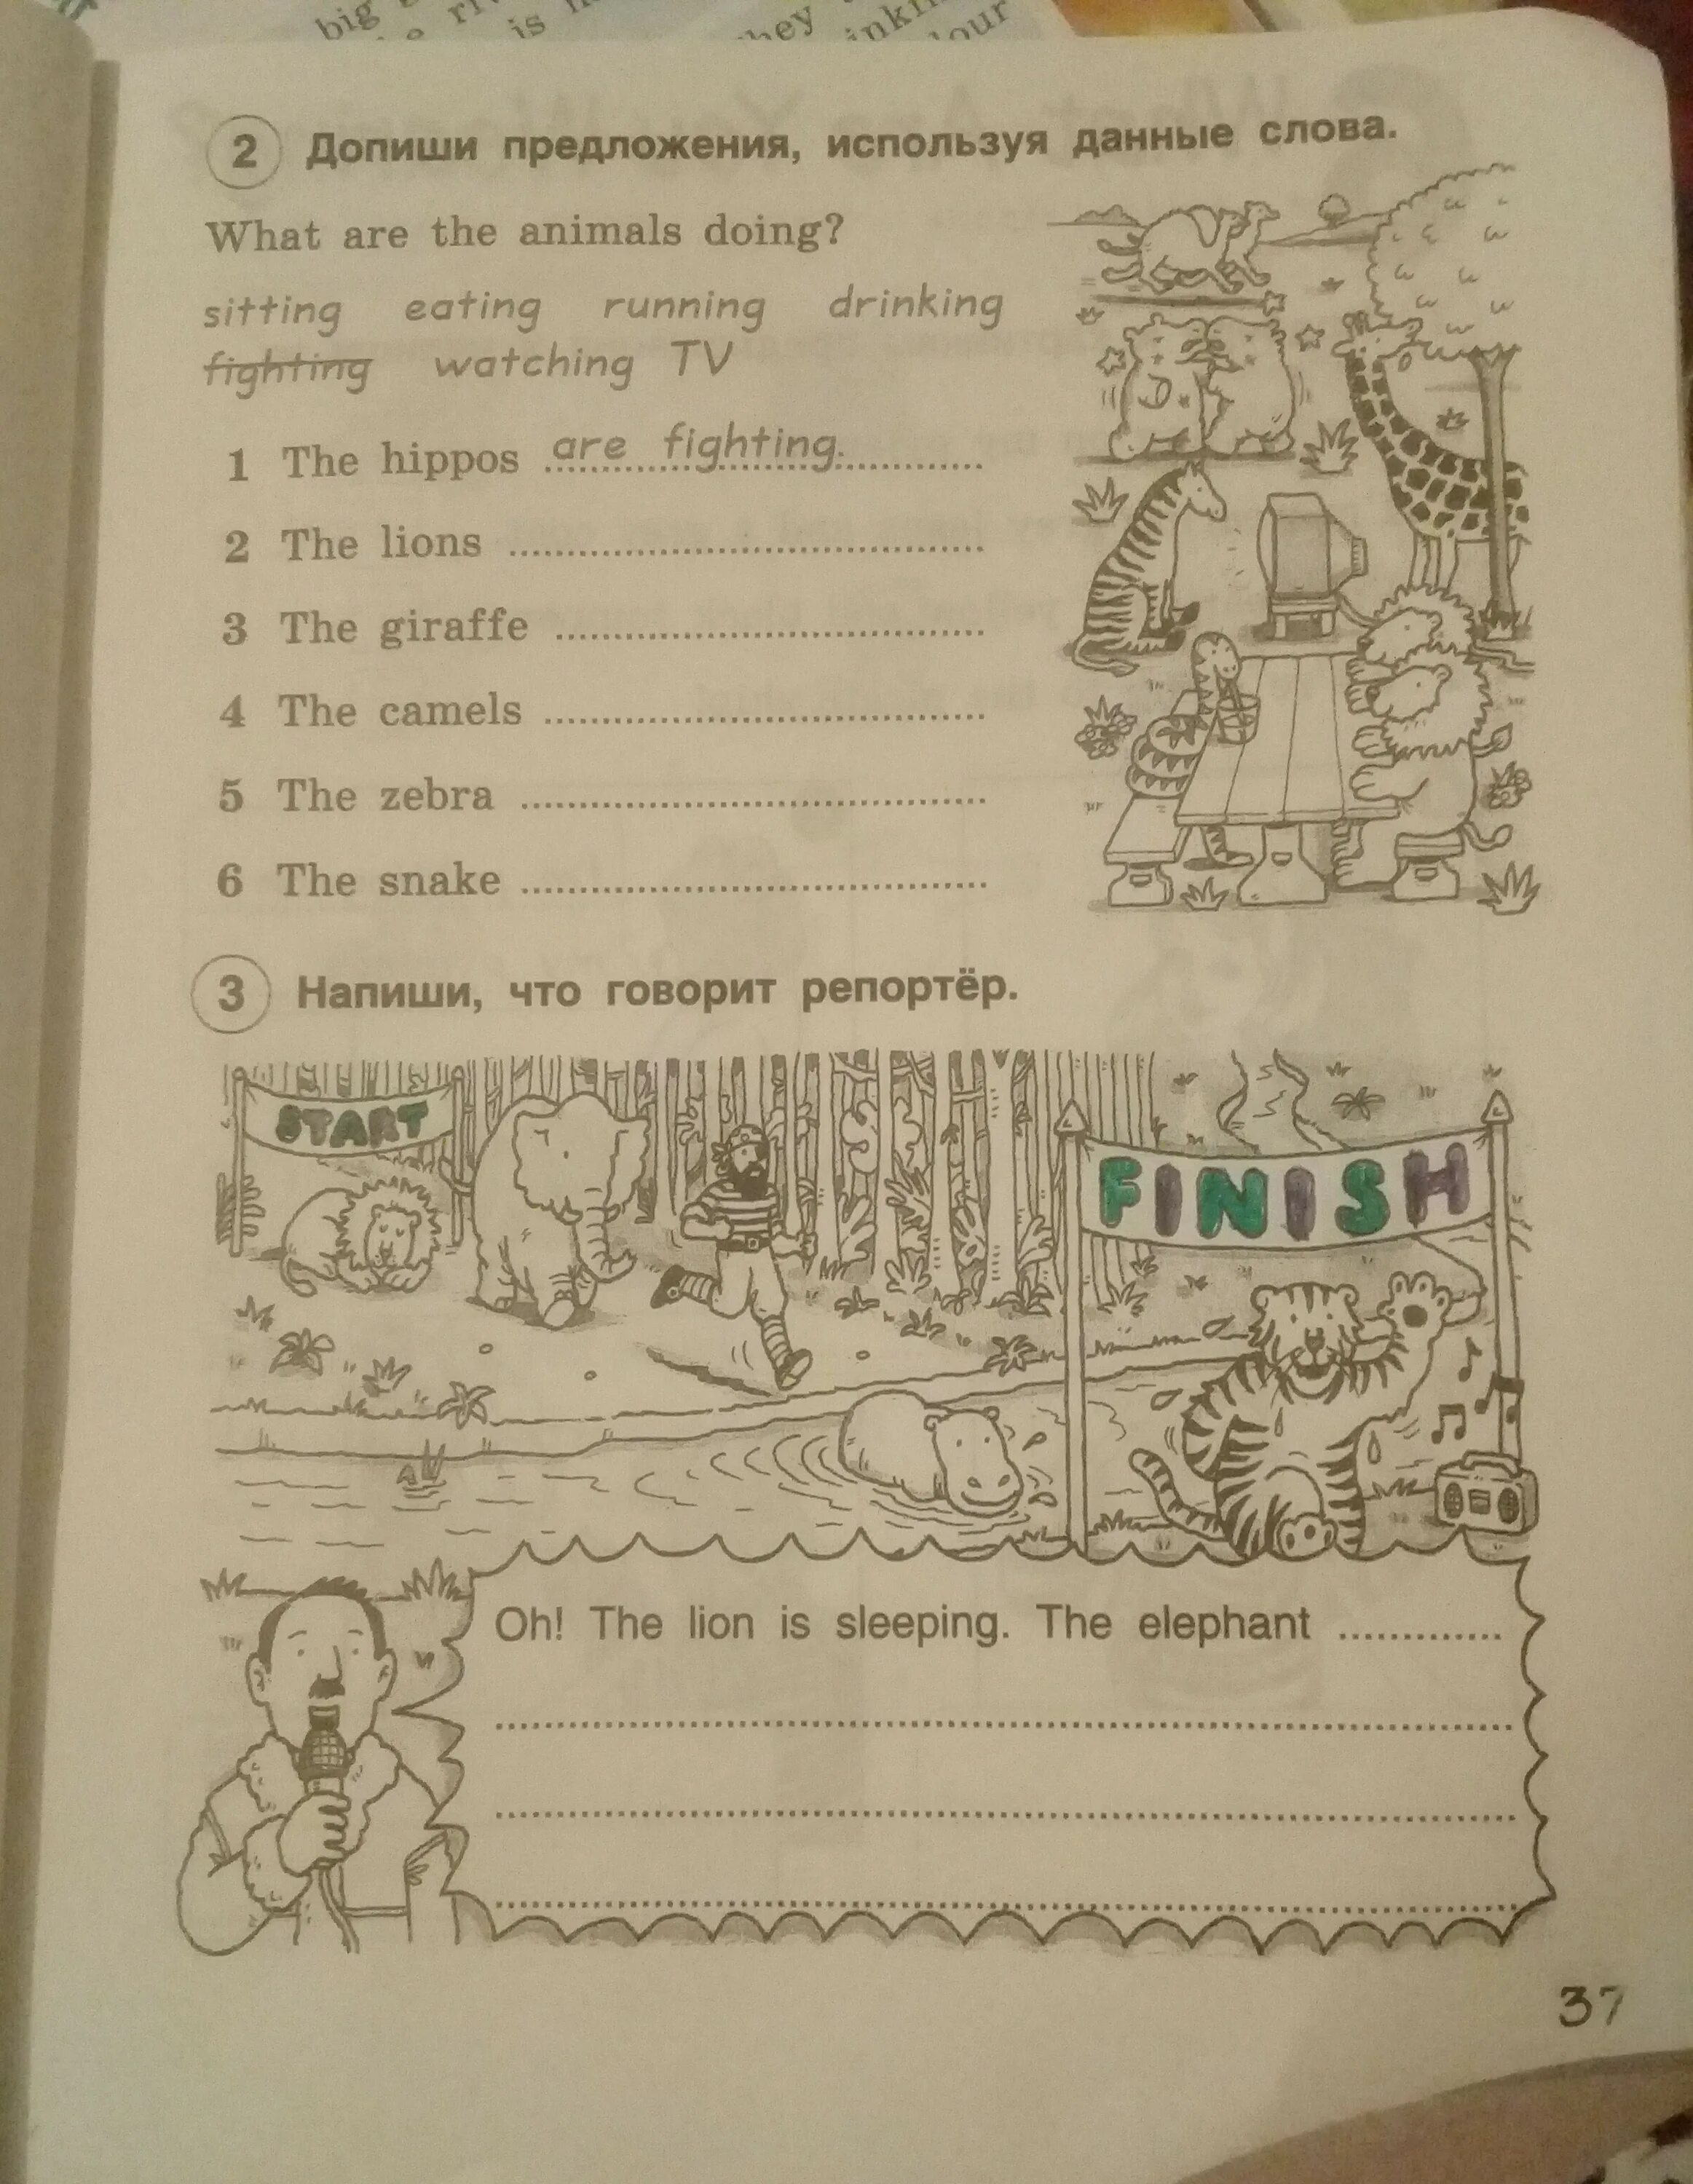 big
is
they
drinkin
lour
2 Допиши предложения, используя данные слова.
What are the animals doing?
sitting eating running drinking
fighting watching TV
1 The hippos are fighting.
2 The lions
3 The giraffe
4 The camels
5 The zebra
6 The snake
3 Напиши, что говорит репортёр.
START
FINISH
Oh! The lion is sleeping. The elephant
37